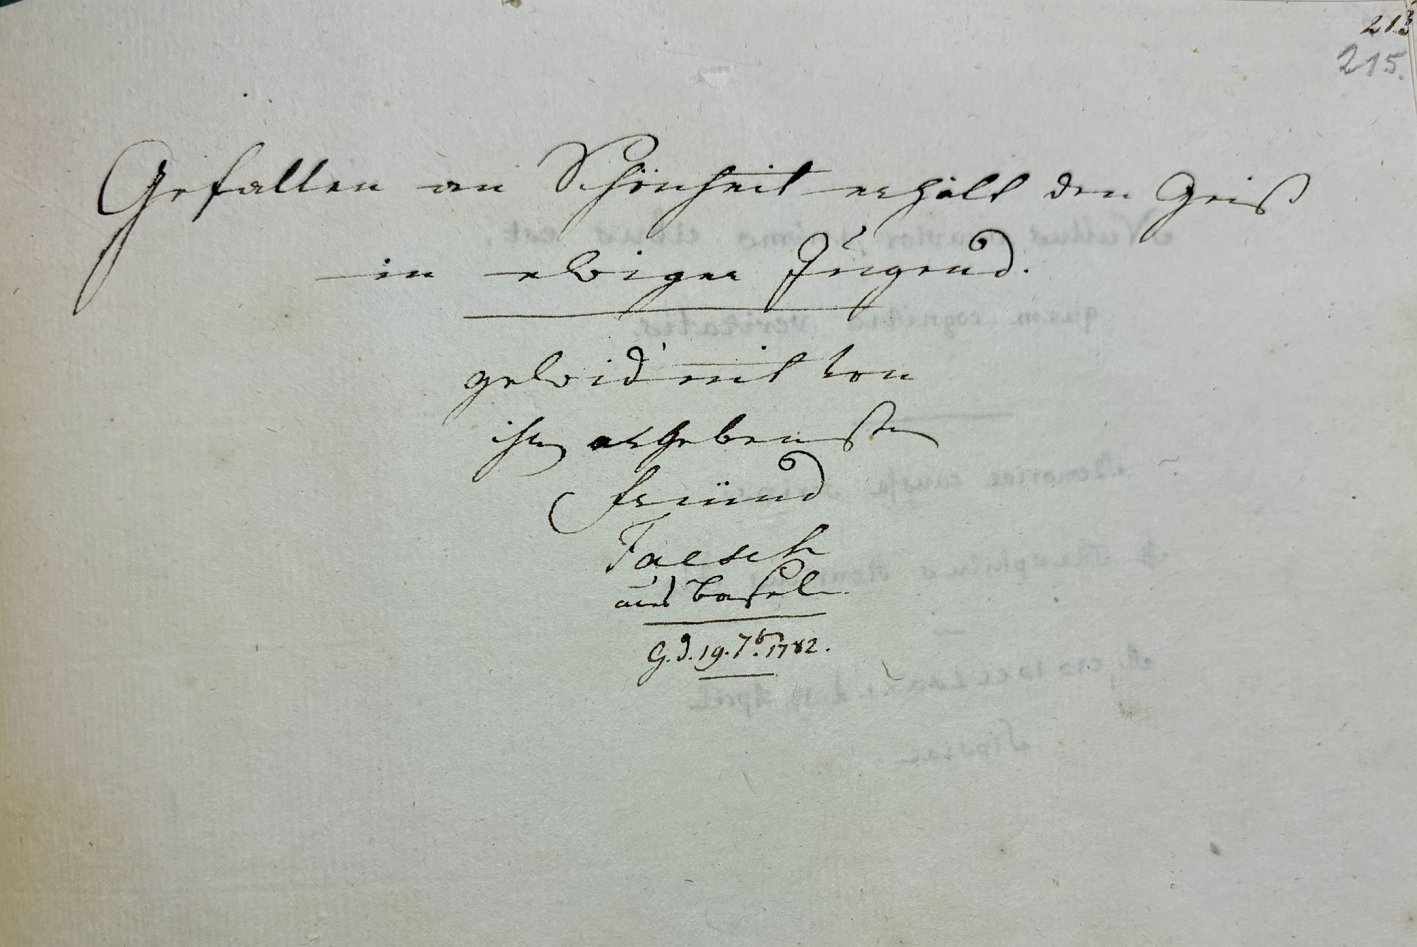 213
215.
Gefallen an Schönheit erhält den Geist
in ewiger Jugend.
gewidmet von
ihrem ergebensten
freünd
Faesch
aus Basel
G. d. 19. 7br. 1782.